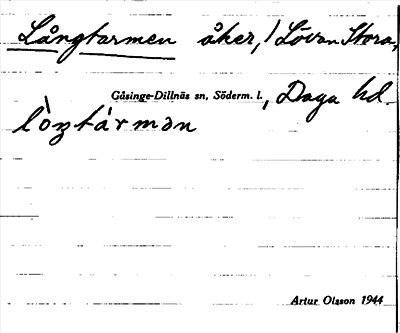 Långtarmen åker, Lövan Stora,
Gåsinge-Dillnäs sn, Söderm. l., Daga hd.
lòŋtármən
Artur Olsson 1944